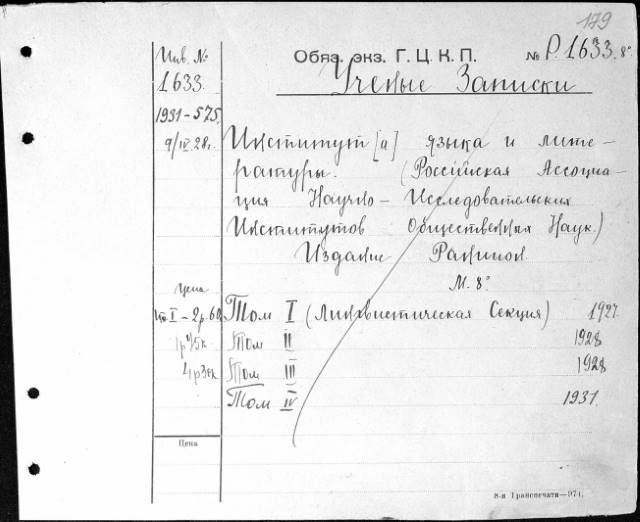 179
Инв. №
Обяз. экз. Г. Ц. К. П.
№ Р. 1633. 8°
1633
Ученые Записки
1931–575
9/IV 28 г.
Институт [а] языка и лите-
ратуры. (Российская Ассоциа-
ция Научно – Исследовательских
Институтов Общественных Наук.)
Издание Ранион.
М. 8°
Цена
Том I (Лингвистическая Секция) 1927.
Том II 1928
Том III 1928
Том IV 1931.
Цена
8-я Транспечати—974.